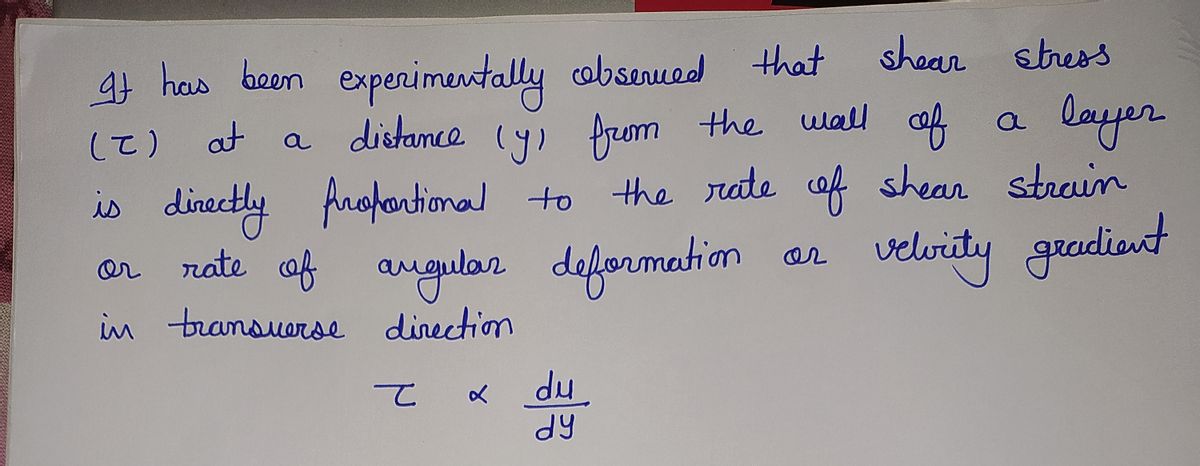 It has been experimentally observed that shear stress
(τ) at a distance (y) from the wall of a layer
is directly proportional to the rate of shear strain
or rate of angular deformation or velocity gradient
in transverse direction
τ ∝ du/dy